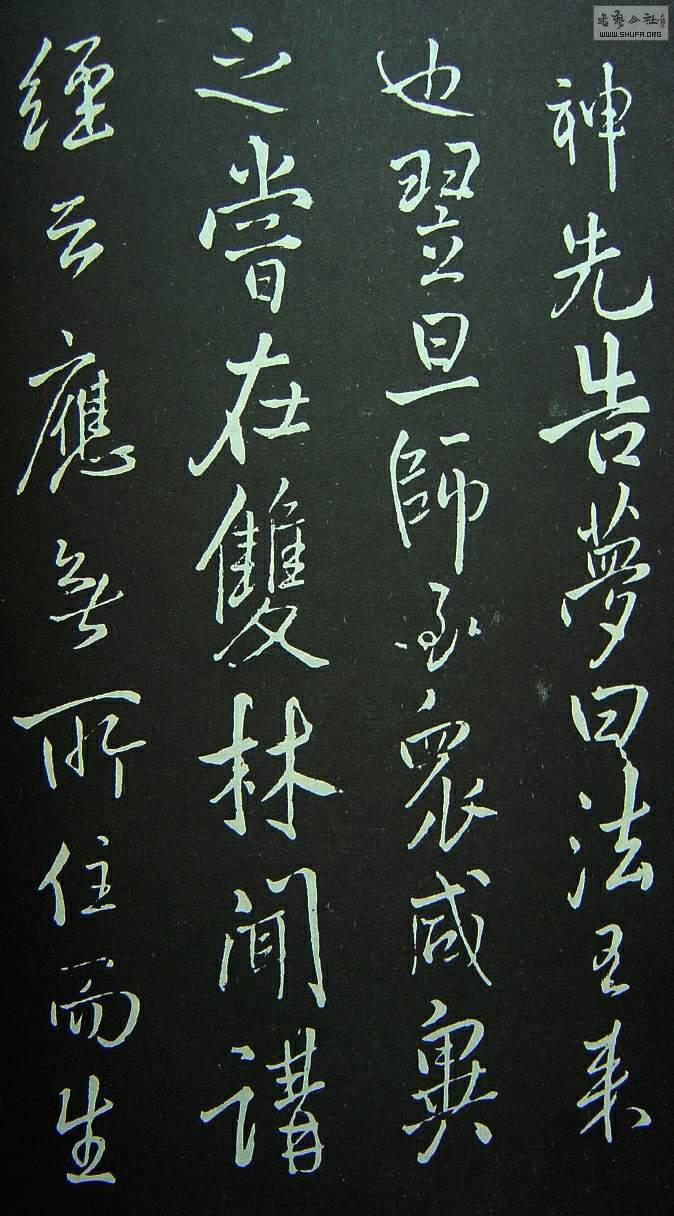 神先告夢曰法王来
也翌旦師至衆咸異
之嘗在雙林聞講
經云應無所住而生
書藝公社
WWW.SHUFA.ORG